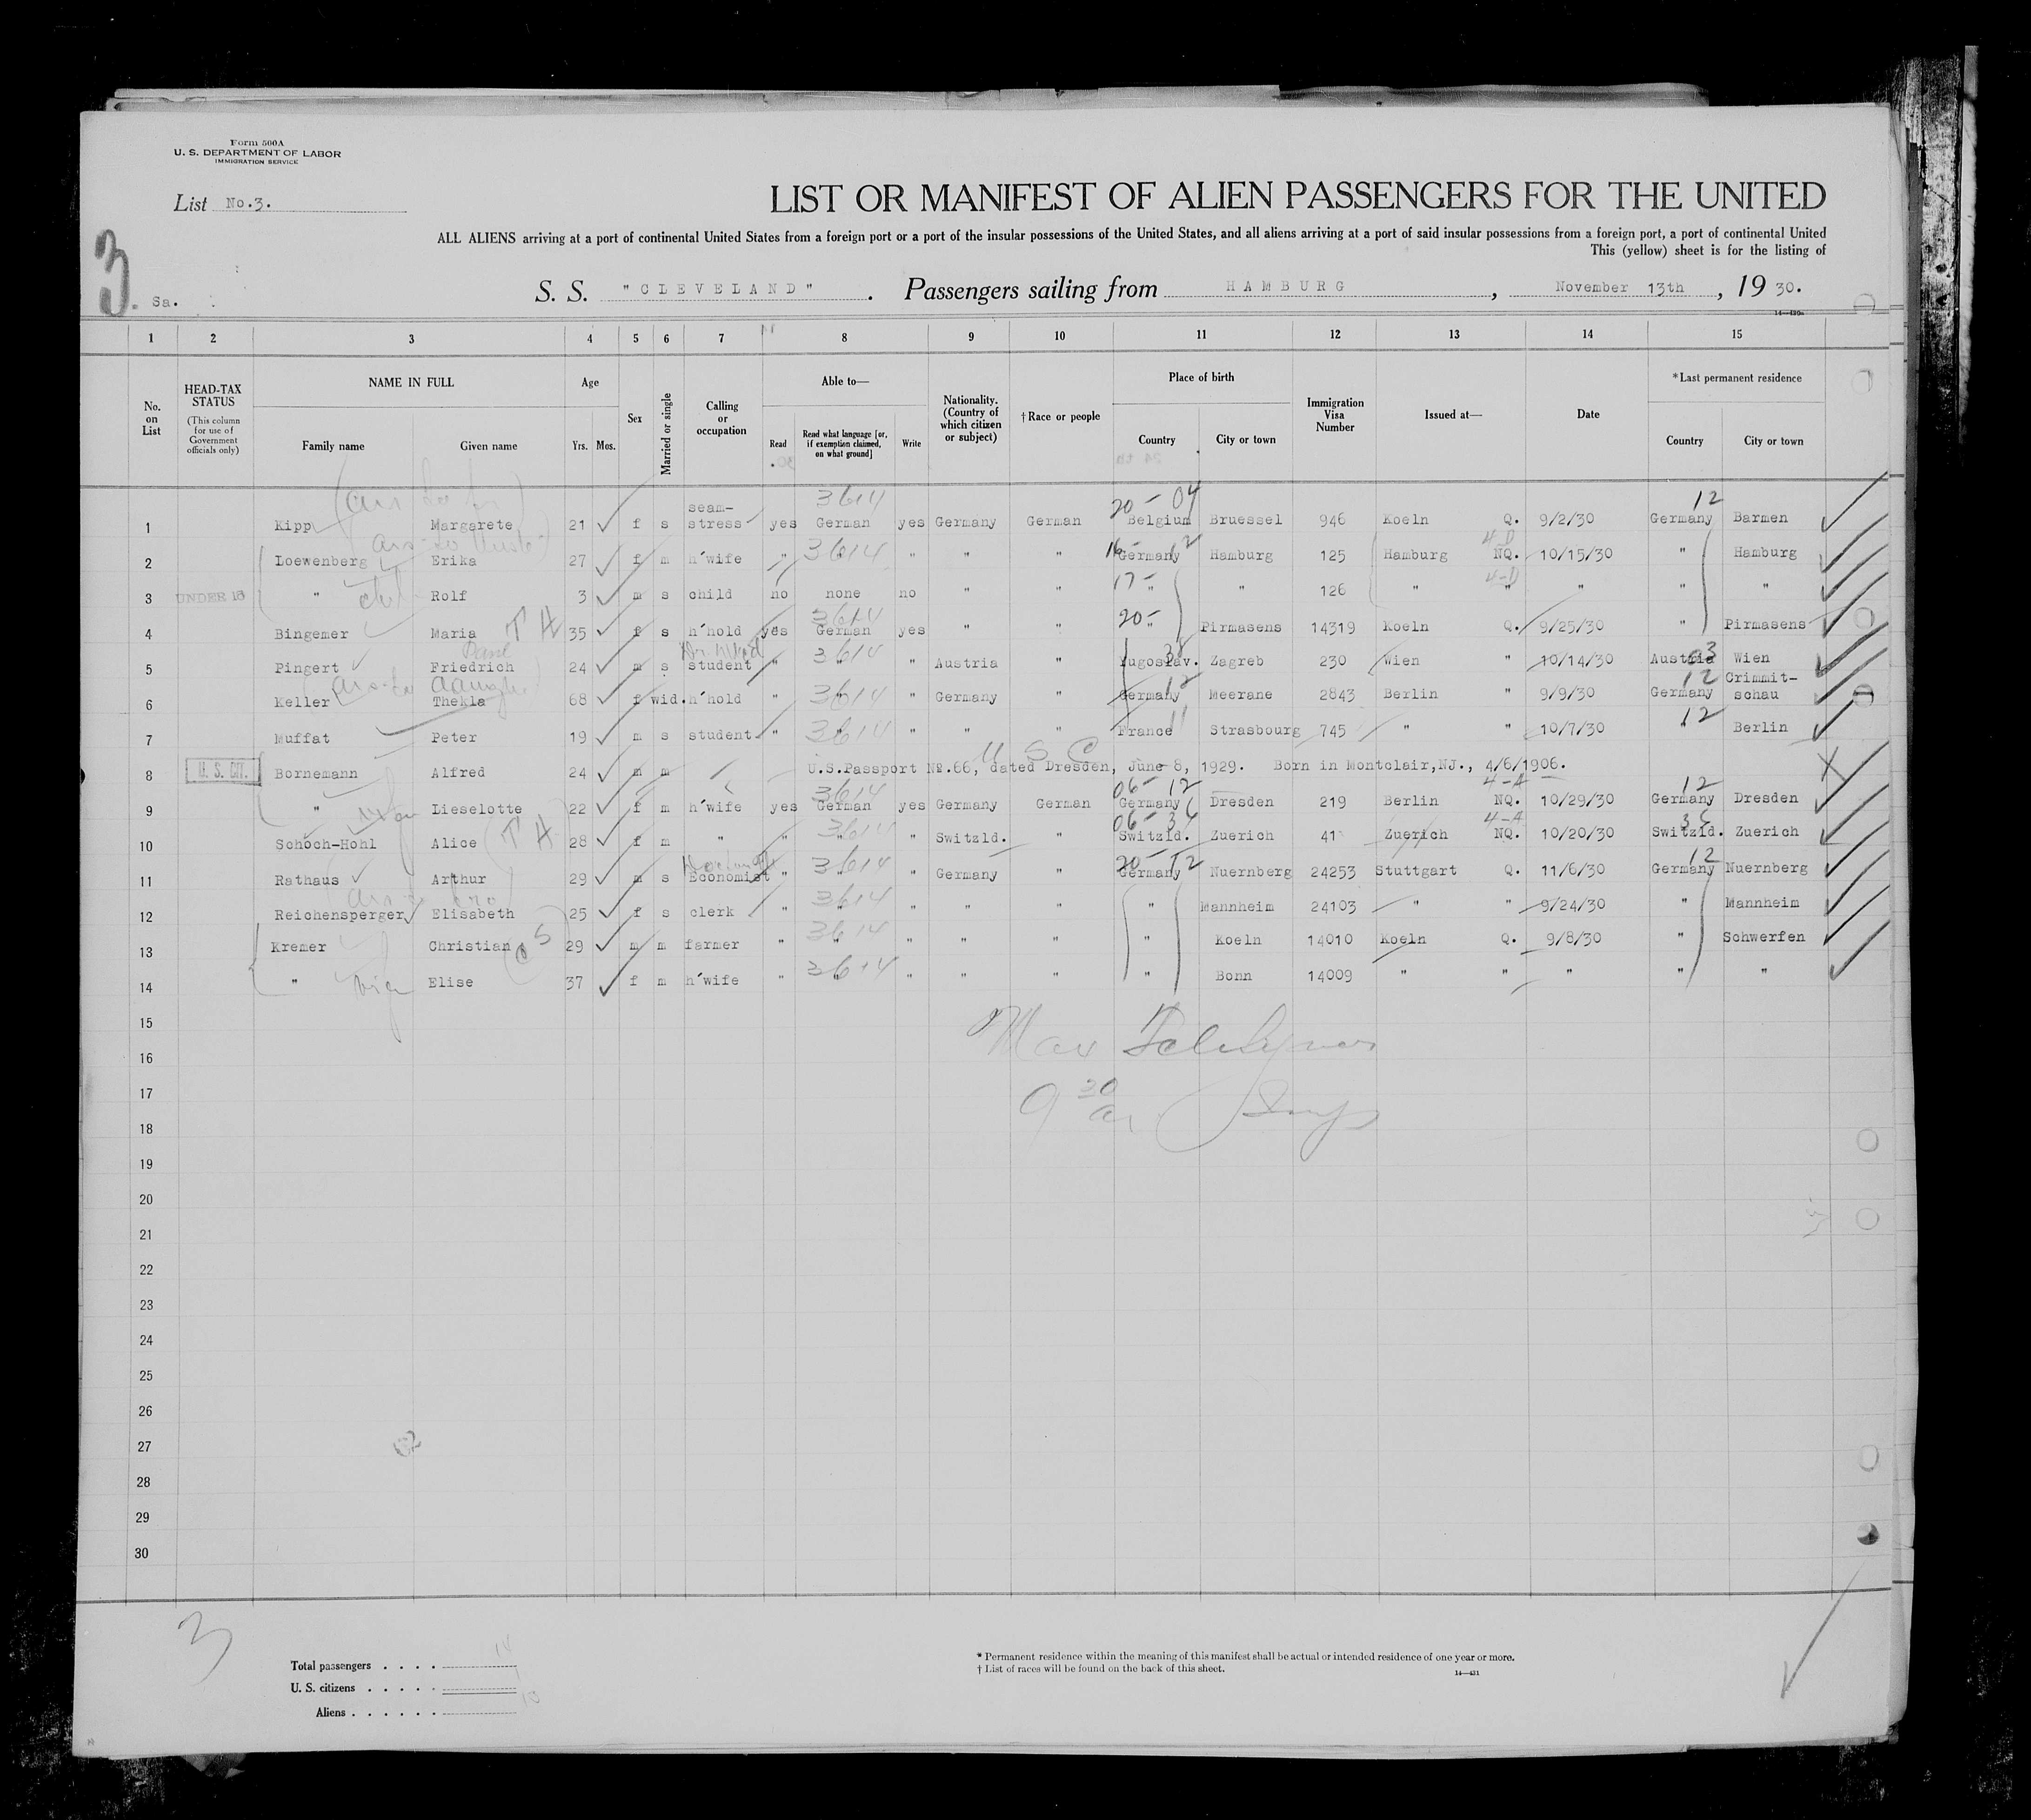 Form 500A
U. S. DEPARTMENT OF LABOR
IMMIGRATION SERVICE
List No.3.
LIST OR MANIFEST OF ALIEN PASSENGERS FOR THE UNITED
ALL ALIENS arriving at a port of continental United States from a foreign port or a port of the insular possessions of the United States, and all aliens arriving at a port of said insular possessions from a foreign port, a port of continental United
This (yellow) sheet is for the listing of
3
Sa.
S. S. "CLEVELAND". Passengers sailing from HAMBURG, November 13th, 1930.
1 2 3 4 5 6 7 8 9 10 11 12 13 14 15
No. on List
HEAD-TAX STATUS (This column for use of Government officials only)
NAME IN FULL
Family name Given name
Age
Yrs. Mos.
Sex
Married or single
Calling or occupation
Able to—
Read Read what language [or, if exemption claimed, on what ground] Write
Nationality. (Country of which citizen or subject)
† Race or people
Place of birth
Country City or town
Immigration Visa Number
Issued at—
Date
*Last permanent residence
Country City or town
3614 20-04 12
1 Kipp Margarete 21 f s seam-stress yes German yes Germany German Belgium Bruessel 946 Koeln Q. 9/2/30 Germany Barmen
3614 12 4-D
2 Loewenberg Erika 27 f m h'wife " " " " " Germany Hamburg 125 Hamburg NQ. 10/15/30 " Hamburg
17- 4-D
3 UNDER 16 " Rolf 3 m s child no none no " " " " 126 " " " " "
TH 3614 20-
4 Bingemer Maria 35 f s h'hold yes German yes " " " Pirmasens 14319 Koeln Q. 9/25/30 " Pirmasens
3614 03
5 Pingert Friedrich 24 m s student " " " Austria " Yugoslav. Zagreb 230 Wien " 10/14/30 Austria Wien
3614 12 12
6 Keller Thekla 68 f wid. h'hold " " " Germany " Germany Meerane 2843 Berlin " 9/9/30 Germany Crimmit-schau
3614 11 12
7 Muffat Peter 19 m s student " " " " " France Strasbourg 745 " " 10/7/30 " Berlin
U S C
8 U. S. CIT. Bornemann Alfred 24 m m U.S.Passport No.66, dated Dresden, June 8, 1929. Born in Montclair,NJ., 4/6/1906.
3614 06-12 4-A 12
9 " Lieselotte 22 f m h'wife yes German yes Germany German Germany Dresden 219 Berlin NQ. 10/29/30 Germany Dresden
TH 3614 06-36 4-A 36
10 Schoch-Hohl Alice 28 f m " " " " Switzld. " Switzld. Zuerich 41 Zuerich NQ. 10/20/30 Switzld. Zuerich
3614 20-12 12
11 Rathaus Arthur 29 m s Economist " " " Germany " Germany Nuernberg 24253 Stuttgart Q. 11/6/30 Germany Nuernberg
3614
12 Reichensperger Elisabeth 25 f s clerk " " " " " " Mannheim 24103 " " 9/24/30 " Mannheim
3614
13 Kremer Christian 29 m m farmer " " " " " " Koeln 14010 Koeln Q. 9/8/30 " Schwerfen
3614
14 " Elise 37 f m h'wife " " " " " " Bonn 14009 " " " " "
15
16
17
18
19
20
21
22
23
24
25
26
27
28
29
30
3
Total passengers . . . . 14
U. S. citizens . . . . .
Aliens . . . . . .
* Permanent residence within the meaning of this manifest shall be actual or intended residence of one year or more.
† List of races will be found on the back of this sheet.
14—431